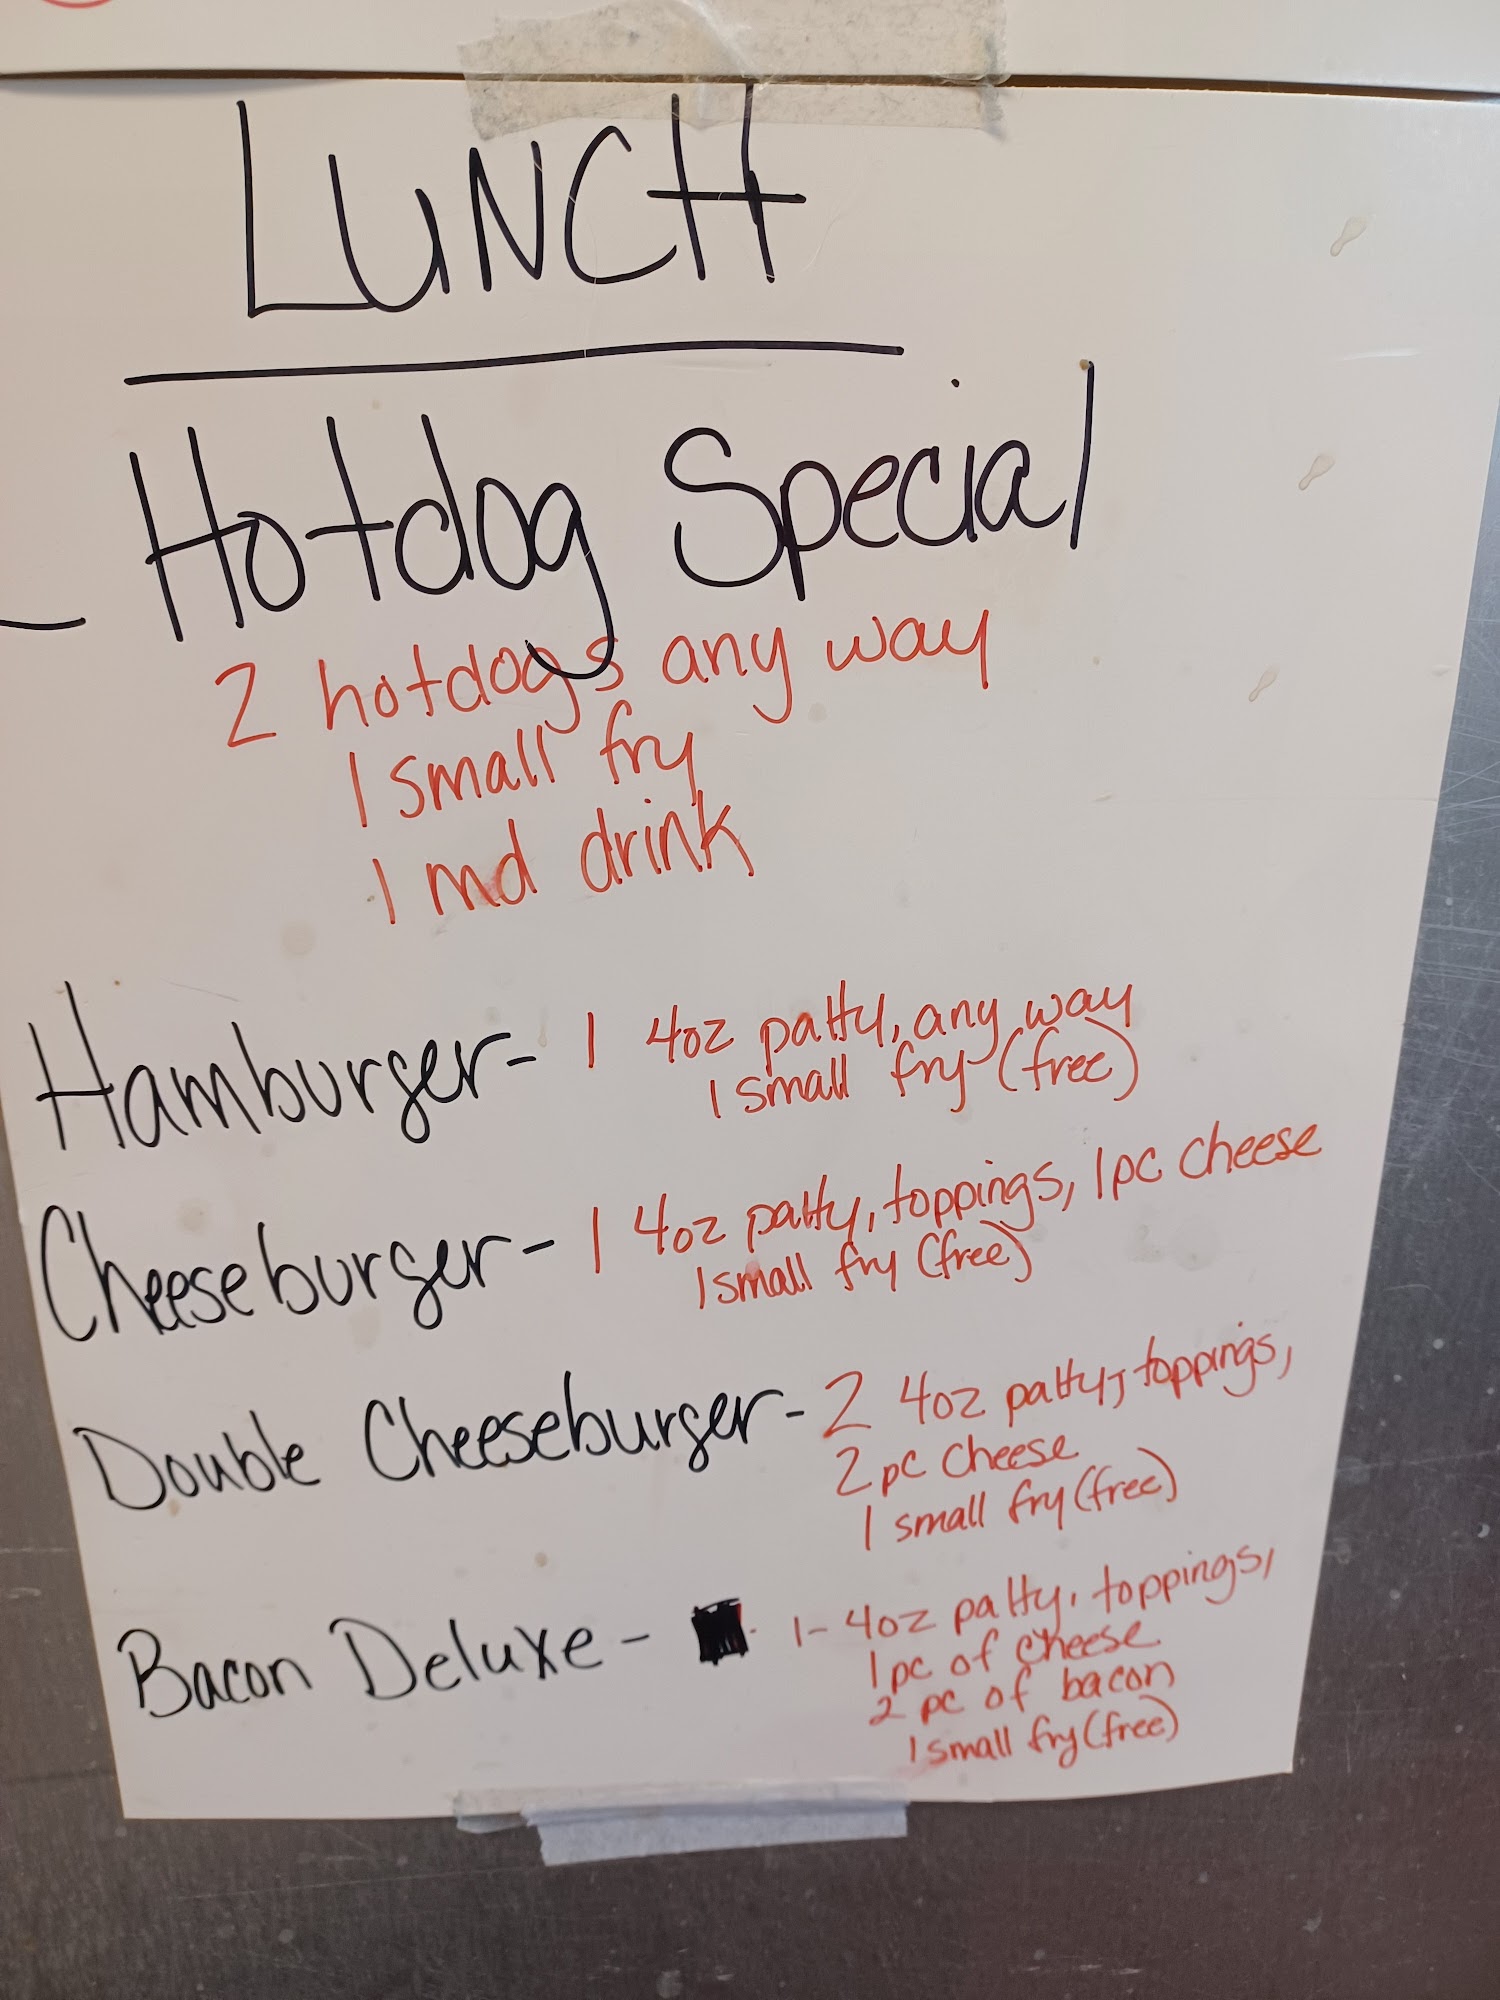 LUNCH
- Hotdog Special
2 hotdogs any way
1 small fry
1 md drink
Hamburger - 1 4oz patty, any way
1 small fry (free)
Cheeseburger - 1 4oz patty, toppings, 1pc cheese
1 small fry (free)
Double Cheeseburger - 2 4oz patty, toppings,
2 pc cheese
1 small fry (free)
Bacon Deluxe - 1- 4oz patty, toppings,
1 pc of cheese
2 pc of bacon
1 small fry (free)